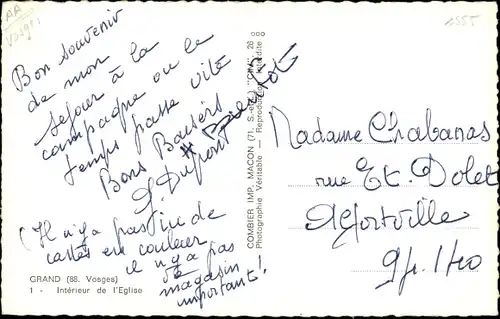 AA
Vosges
1555
Bon souvenir
de mon
sejour à la
campagne ou le
temps passe vite
Bons Baisers
S. Dupont
(Il n'y a pas
de
cartes en couleur
il n'y a pas
de
magasin
important!
GRAND (88. Vosges)
1 - Intérieur de l'Eglise
COMBIER IMP. MACON (71, S.-et-L.) "CIM" 26
Photographie Véritable — Reproduction Interdite
Madame Chabanas
rue Et. Dolet
Alfortville
94.140